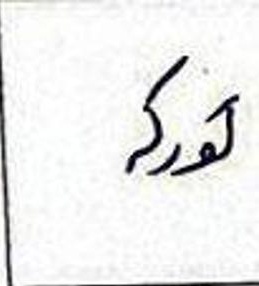 کورکہ